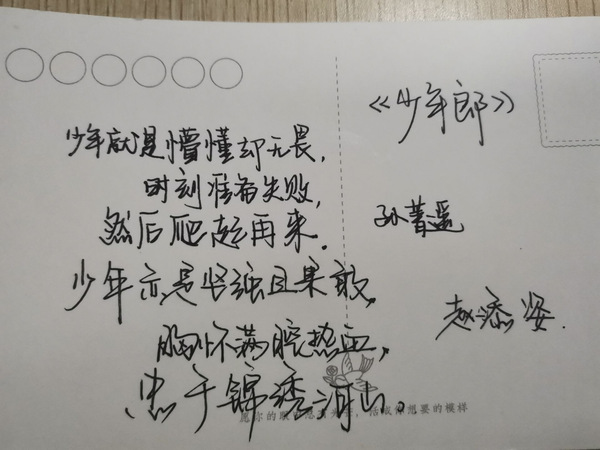 《少年郎》
少年就是懵懂却无畏，
时刻准备失败，
然后爬起再来。
孙菁遥
少年亦是坚强且果敢，
赵添姿.
胸怀满腔热血，
忠于锦绣河山。
愿你的眼 活成你想要的模样